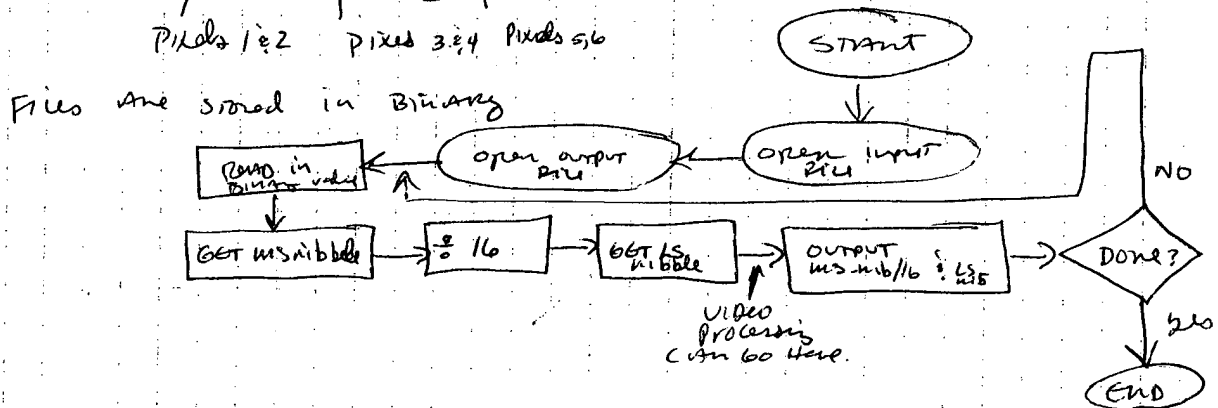 Pixels 1 & 2 Pixels 3 & 4 Pixels 5,6
START
Files Are stored in Binary
Open input
File
Open output
File
Read in
Binary value
NO
GET ms nibble
÷ 16
GET LS
nibble
OUTPUT
ms-nib/16 & LS
nib
Done?
Video
Processing
Can Go Here.
yes
END